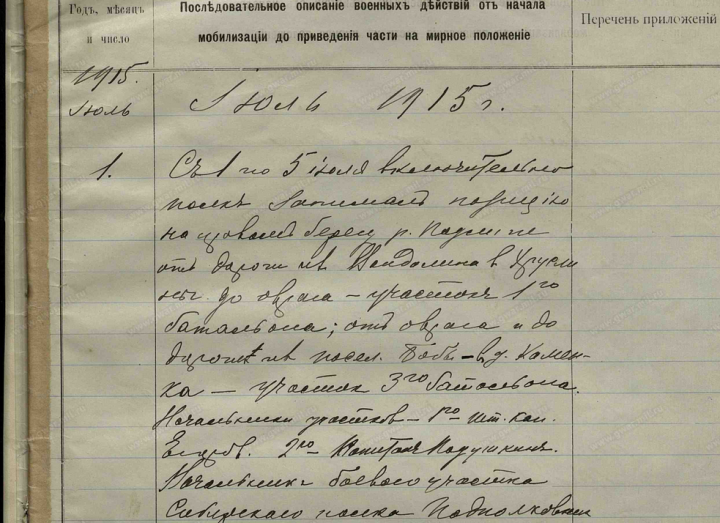 Годъ, мѣсяцъ и число
Послѣдовательное описаніе военныхъ дѣйствій отъ начала
мобилизаціи до приведенія части на мирное положеніе
Перечень приложеній
1915.
Іюль
Іюль 1915 г.
1.
Съ 1 по 5 іюля включительно
полкъ занималъ позицію
на правомъ берегу р.
отъ дороги изъ в
до оврага – участокъ 1го
баталіона; отъ оврага и до
дороги изъ посел. – в д. Камен-
ка – участок 3го баталіона.
Начальники участков – 1го шт. кап.
2го – Капитанъ
Начальник боевого участка
Сибирскаго полка Подполковник